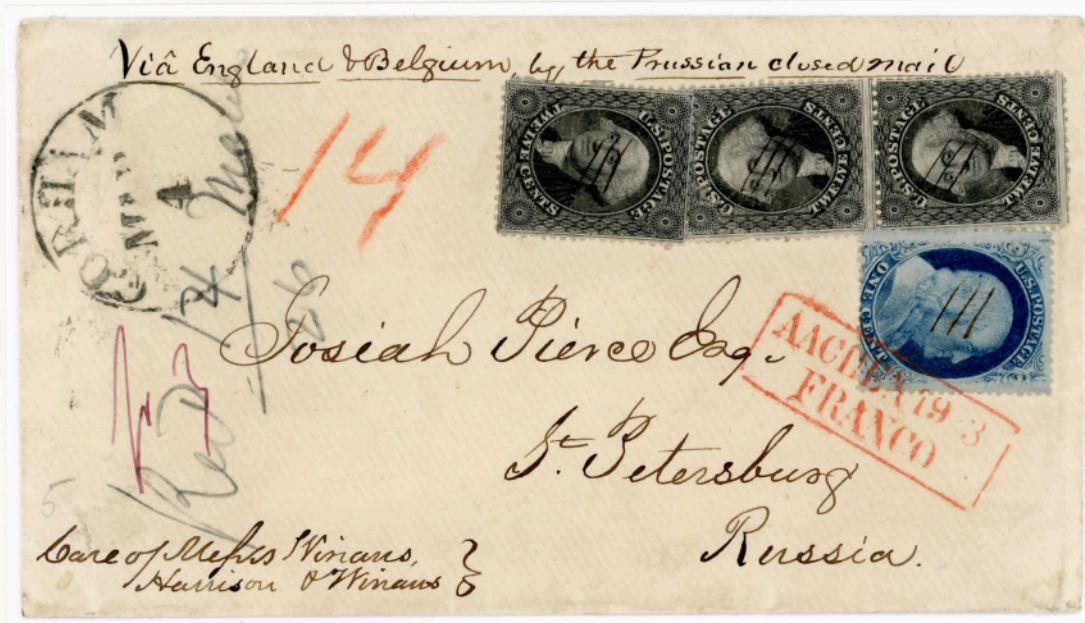 Viâ England & Belgium, by the Prussian closed mail
GORHAM
4
14
TWELVE CENTS
U.S. POSTAGE
U.S. POSTAGE
TWELVE CENTS
U.S. POSTAGE
TWELVE CENTS
ONE CENT
U.S. POSTAGE
AACHEN 19 3
FRANCO
Josiah Pierce Esq.
St. Petersburg
Russia.
Care of Messrs Winans,
Harrison & Winans
26
5